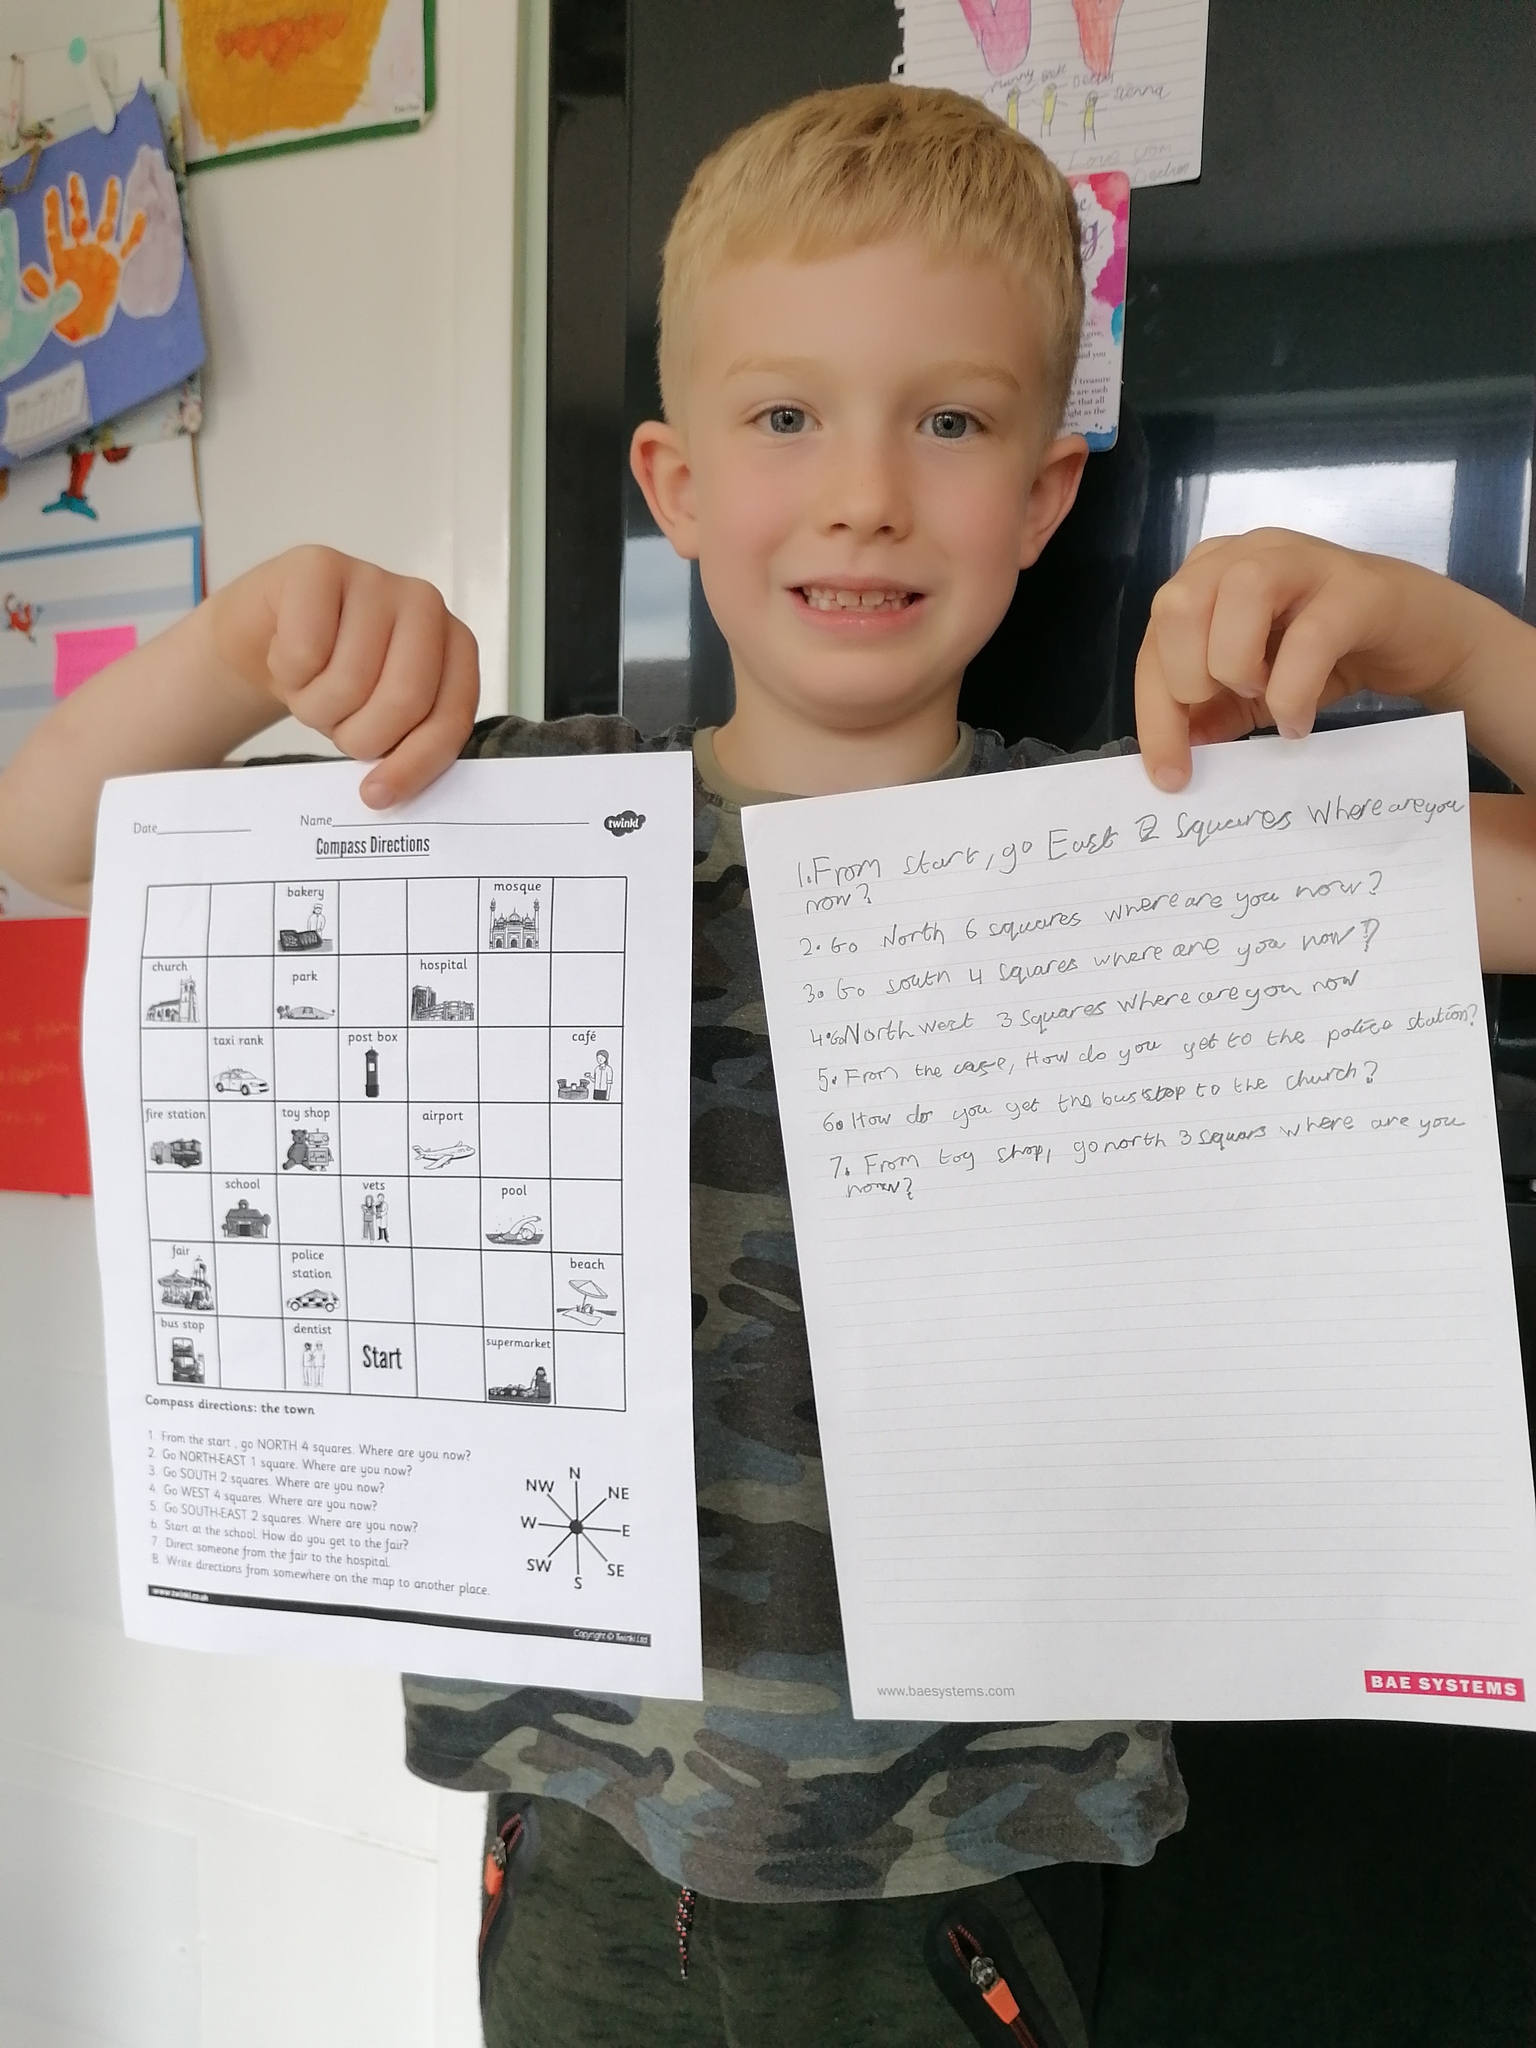 Date
Name
twinkl
Compass Directions
bakery
mosque
church
park
hospital
taxi rank
post box
café
fire station
toy shop
airport
school
vets
pool
fair
police
station
beach
bus stop
dentist
Start
supermarket
Compass directions: the town
1. From the start , go NORTH 4 squares. Where are you now?
2. Go NORTH-EAST 1 square. Where are you now?
3. Go SOUTH 2 squares. Where are you now?
4. Go WEST 4 squares. Where are you now?
5. Go SOUTH-EAST 2 squares. Where are you now?
6. Start at the school. How do you get to the fair?
7. Direct someone from the fair to the hospital.
8. Write directions from somewhere on the map to another place.
N
NW
NE
W
E
SW
SE
S
www.twinkl.co.uk
Copyright © Twinkl Ltd
1. From start, go East 2 squares where are you
now?
2. Go North 6 squares where are you now?
3. Go south 4 squares where are you now?
4. Go North west 3 squares where are you now
5. From the cafe, How do you get to the police station?
6. How do you get the bus stop to the church?
7. From toy shop, go north 3 squars where are you
now?
www.baesystems.com
BAE SYSTEMS
Mummy
Sienna
I Love you
give,
and you
treasure
are such
that all